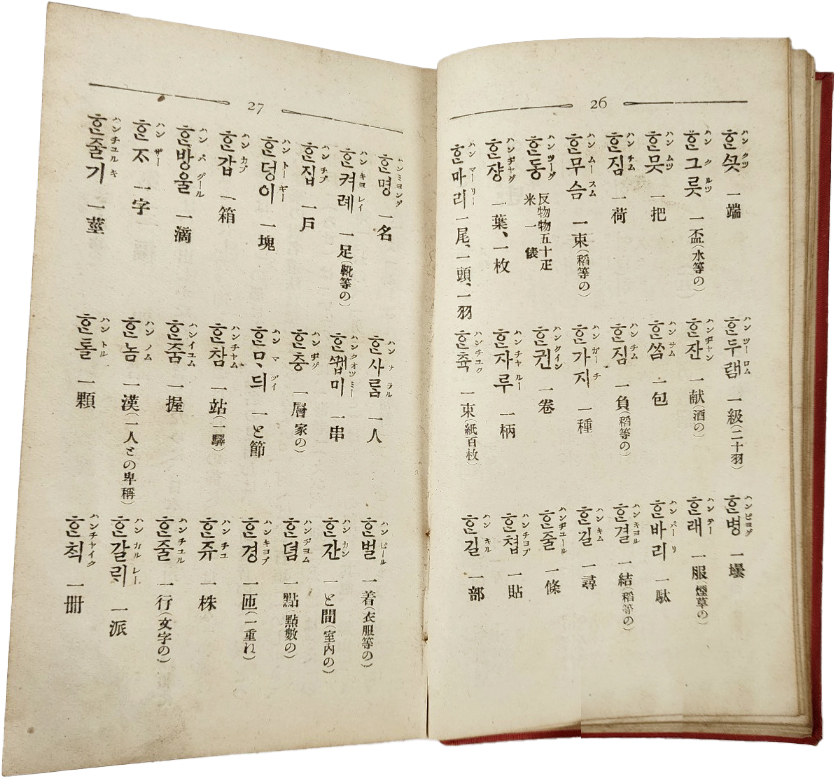 26
ᄒᆞᆫᄭᅳᆺ ハンクツ 一端
ᄒᆞᆫ그릇 ハンクルツ 一盃(水等の)
ᄒᆞᆫ뭇 ハンムツ 一把
ᄒᆞᆫ짐 ハンチム 一荷
ᄒᆞᆫ무슴 ハンムースム 一束(稻等の)
ᄒᆞᆫ동 反物物五十疋 米一俵
ᄒᆞᆫ쟝 ハンヂヤグ 一葉、一枚
ᄒᆞᆫ마리 ハンマーリー 一尾、一頭、一羽
ᄒᆞᆫ두럼 ハンツーロム 一級(二十羽)
ᄒᆞᆫ잔 ハンヂヤン 一献(酒の)
ᄒᆞᆫ쌈 ハンサム 一包
ᄒᆞᆫ짐 ハンチム 一負(稻等の)
ᄒᆞᆫ가지 ハンガーチ 一種
ᄒᆞᆫ권 ハンクイン 一卷
ᄒᆞᆫ자루 ハンチャルー 一柄
ᄒᆞᆫ츅 ハンチユク 一束(紙百枚)
ᄒᆞᆫ병 ハンピヨグ 一壜
ᄒᆞᆫ래 ハンテー 一服(煙草の)
ᄒᆞᆫ바리 ハンパーリ 一駄
ᄒᆞᆫ결 ハンキヨル 一結(稻等の)
ᄒᆞᆫ길 ハンキム 一尋
ᄒᆞᆫ줄 ハンヂユール 一條
ᄒᆞᆫ쳡 ハンチコプ 一貼
ᄒᆞᆫ길 ハンキル 一部
27
ᄒᆞᆫ명 ハンミヨング 一名
ᄒᆞᆫ켜례 ハンキヨレイ 一足(靴等の)
ᄒᆞᆫ집 ハンチプ 一戶
ᄒᆞᆫ덩이 ハントーギー 一塊
ᄒᆞᆫ갑 ハンカプ 一箱
ᄒᆞᆫ방울 ハンパグール 一滴
ᄒᆞᆫᄌᆞ ハンザー 一字
ᄒᆞᆫ줄기 ハンチユルキ 一莖
ᄒᆞᆫ사ᄅᆞᆷ ハンサラル 一人
ᄒᆞᆫ꿰미 ハンクオツミー 一串
ᄒᆞᆫ층 一層(家の)
ᄒᆞᆫ마듸 ハンマデイ 一と節
ᄒᆞᆫ참 ハンチヤム 一站(一驛)
ᄒᆞᆫ줌 ハンイユム 一握
ᄒᆞᆫ놈 ハンノム 一漢(一人との卑稱)
ᄒᆞᆫ톨 ハントル 一顆
ᄒᆞᆫ벌 ハンポール 一着(衣服等の)
ᄒᆞᆫ간 ハンカン 一と間(室內の)
ᄒᆞᆫ뎜 ハンヂヨム 一點(點數の)
ᄒᆞᆫ경 ハンキコブ 一匝(一重ね)
ᄒᆞᆫ쥬 ハンチユ 一株
ᄒᆞᆫ줄 ハンチユル 一行(文字の)
ᄒᆞᆫ갈ᄅᆡ ハンカルレー 一派
ᄒᆞᆫ칙 ハンチヤイク 一册